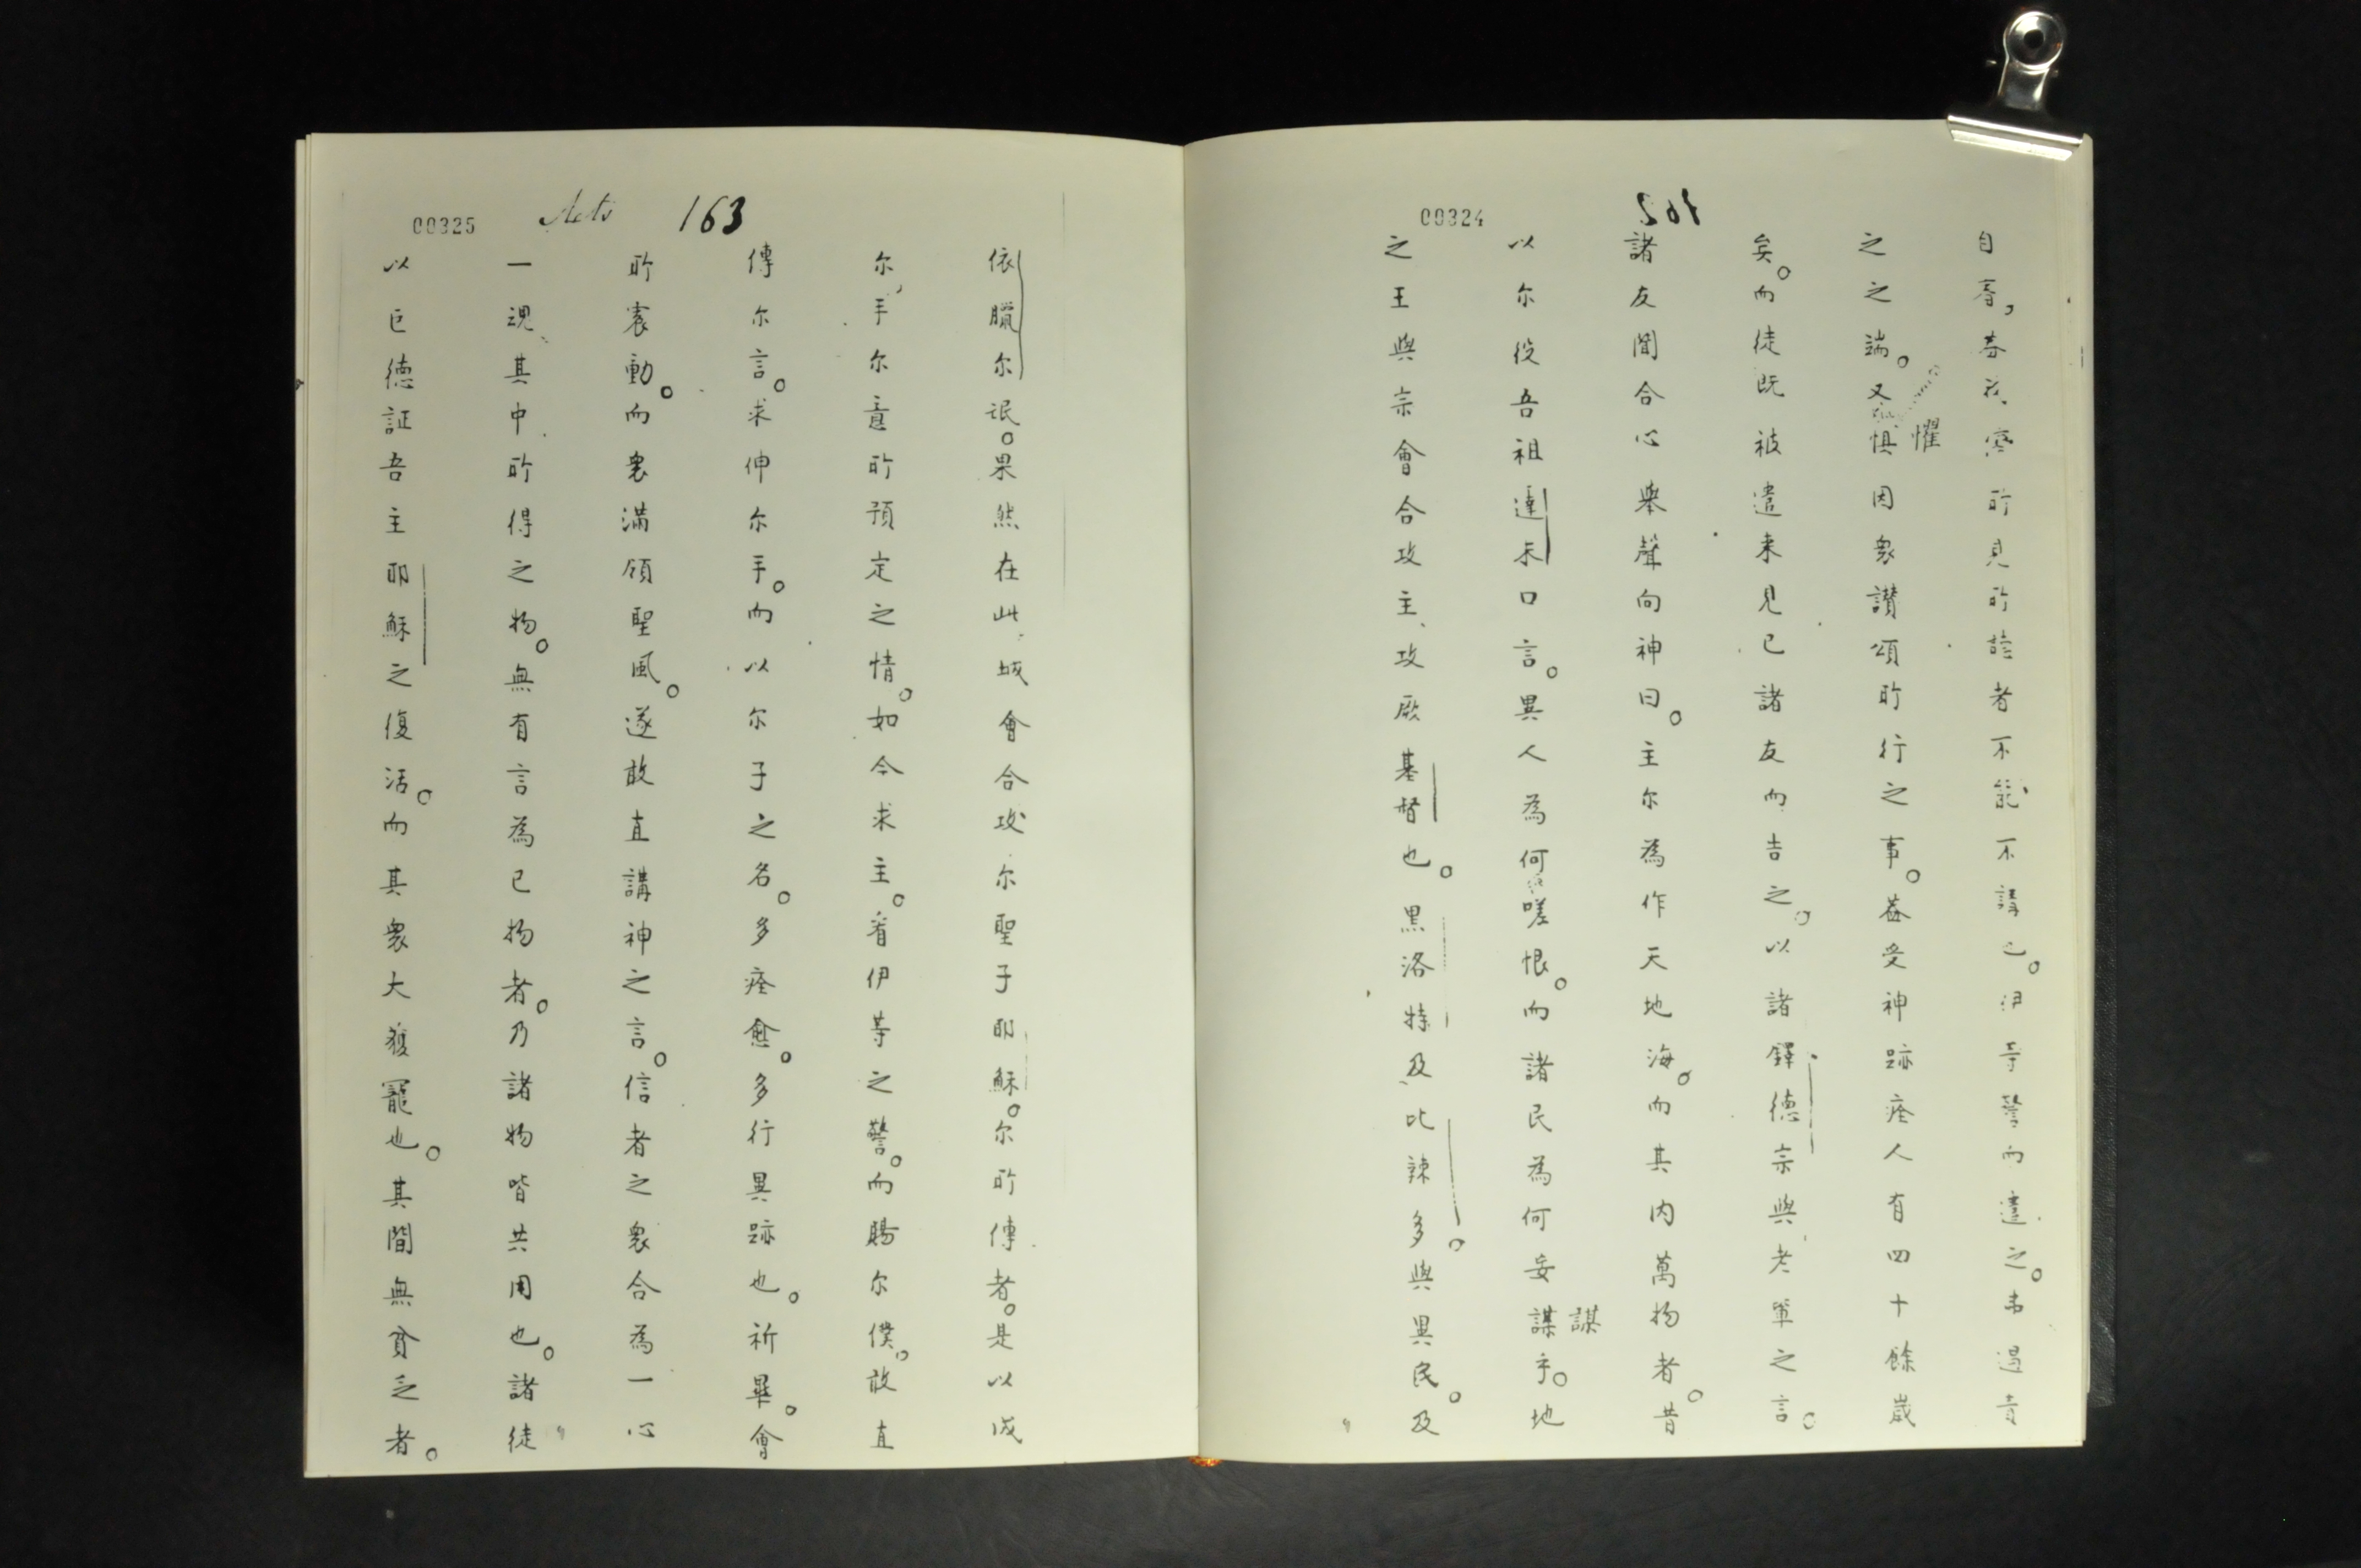 00324
162
自看,吾等所見所聽者不能不講也。伊等警而遣之。弗遇責
之之端。又惧因衆讃頌所行之事。葢受神跡痊人有四十餘歲
懼
矣。而徒既被遣来見己諸友而吿之。以諸鐸德宗與老軰之言。
諸友聞合心舉聲向神曰。主尔為作天地海。而其内萬物者。昔
以尔役吾祖達未口言。異人為何嗟恨。而諸民為何妄謀乎。地
謀
之王與宗會合攻主、攻厥基督也。黒洛特及比辣多。與異民。及
00325
Acts
163
依臘尔氓。果然在此城會合攻尔聖子耶穌。尔所傅者。是以成
尔手尔意所預定之情。如今求主。看伊等之警。而賜尔僕。敢直
傳尔言。求伸尔手。而以尔子之名。多痊愈。多行異跡也。祈畢。會
所寰動。而衆滿領聖風。遂敢直講神之言。信者之衆合為一心
一魂其中所得之物。無有言為己物者。乃諸物皆共用也。諸徒
以巨德証吾主耶穌之復活。而其衆大獲寵也。其間無貧乏者。